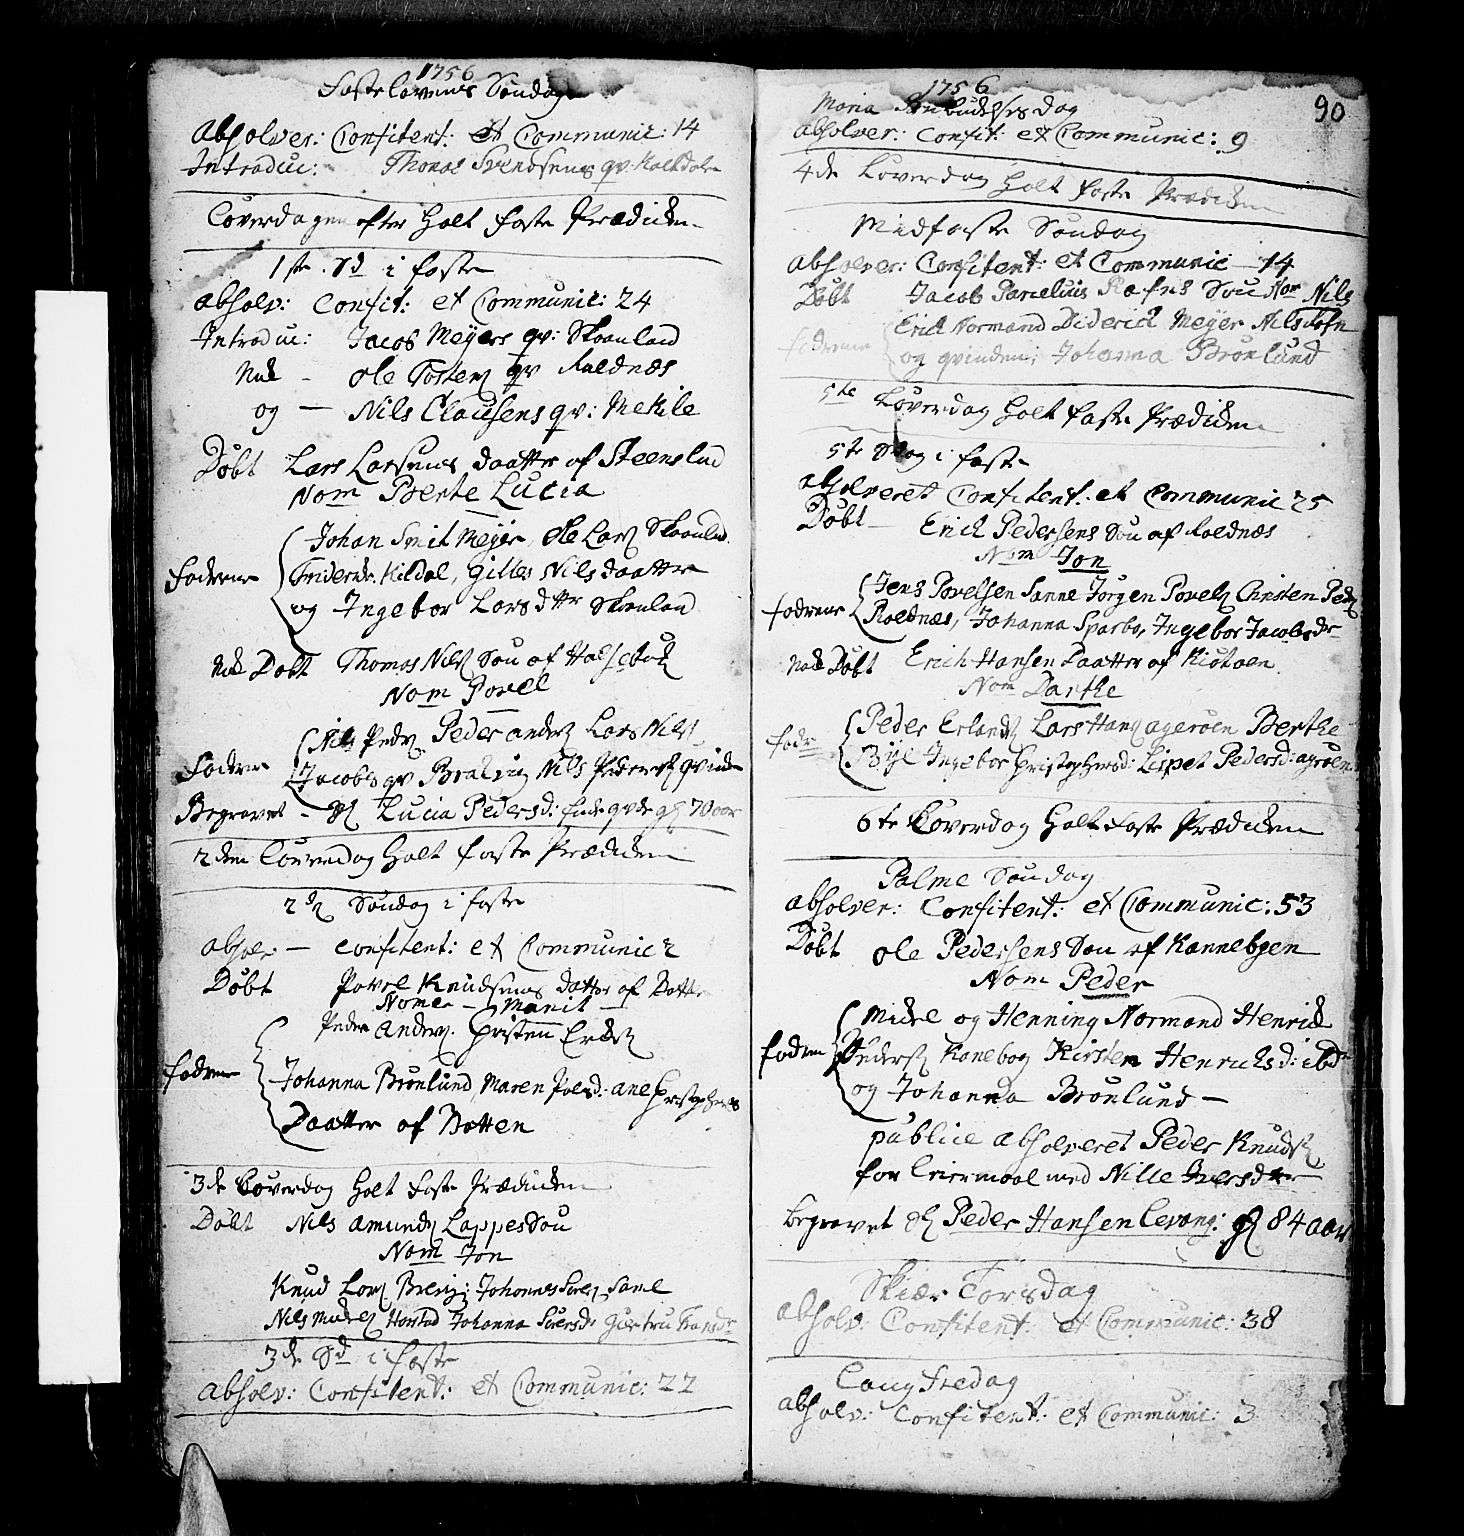 1756
Fastelavens Søndag
Absolver: Confitent: et Communic: 14
Introduc: Thomas Svendsens qv: Kaldalen
Løverdagen efter Holt faste Prædiken
1ste Sd i faste
Absolv: Confit: et Communic: 24
Introduc: Jacob Meyers qv: Skaanland
Nok - Ole Torsten qv Roldnæs
og - Nils Clausens qv:
Døbt Lars Larsens daatter af Steensland
Nom Berte Lucia
Johan Smit Meyer, Ole Lars Skaanland
Fadrene Kildal, Gilles Nilsdaatter
og Ingebor Larsdttr Skaanland
Nok Døbt Thomas Nils Søn af
Nom Povel
Nils Peders Peder Anders Lars Nils
Fadrene Jacobs qv Nils Peders qvinde
Begravet - Lucia Pedersd: 70 aar
2den Løverdag Holt faste Prædiken
2den Søndag i faste
Absol: - Confitent: et Communic 2
Døbt Povel Knudsens datter af Botten
Nomen - Marit -
Peder Anders. Christen Ericks
Fadrene Johanna Brønlund, Maren Polsd: Ane Christophers
Daatter af Botten
3de Løverdag Holt faste Prædiken
Døbt Nils Amunds Lappes Søn
Nom Jon
Knud Lars Johannes Sørens
Nils Mickels Horstad Johanna Siversd: Giertru Hansdr
3de Sd i faste
Absolv: Confitent: et Communic: 22
1756
90
Maria Bebudelses dag
Absolver: Confit: et Communic: 9
4de Løverdag Holt faste Prædiken
Midfaste Søndag
Absolver: Confitent: et Communic 14
Døbt Jacob Parelius Rafns Søn Nom Nils
Fadrene Erick Normand Diderick Meyer Nils
og qvinden; Johanna Brønlund
5te Løverdag Holt faste Prædiken
5te Sdag i faste
Absolveret Confitent. et Communic 25
Døbt - Erick Pedersens Søn af Roldnæs
Nom Jon
Fadrene Jens Povelsen Sanne Jørgen Povels Christen Peders
Roldnæs, Johanna Sparbo, Ingebor Jacobsdr
Nok Døbt Erich Hansen Daatter af Kiøtøen
Nom Darthe
Fadr Peder Erlands Lars Hans Agerøen Berthe
Ingebor Christophersd: Lispet Pedersd: Agerøen
6te Løverdag Holt faste Prædiken
Palme Søndag
Absolver: Confitent: et Communic: 53
Døbt Ole Pedersens Søn af Kannebogen
Nom Peder
Mickel og Henning Normand Henrick
Fadren Peders Kanebog Kirsten Henrichsd: ibd
og Johanna Brønlund -
publice absolveret Peder Knuds
for Leiermaal med Nille Iversdtr
Begravet Peder Hansen Levang: 84 aar
Skiær Torsdag
Absolv: Confitent: et Communic: 38
Langfredag
Absolv: Confitent: et Communic: 3